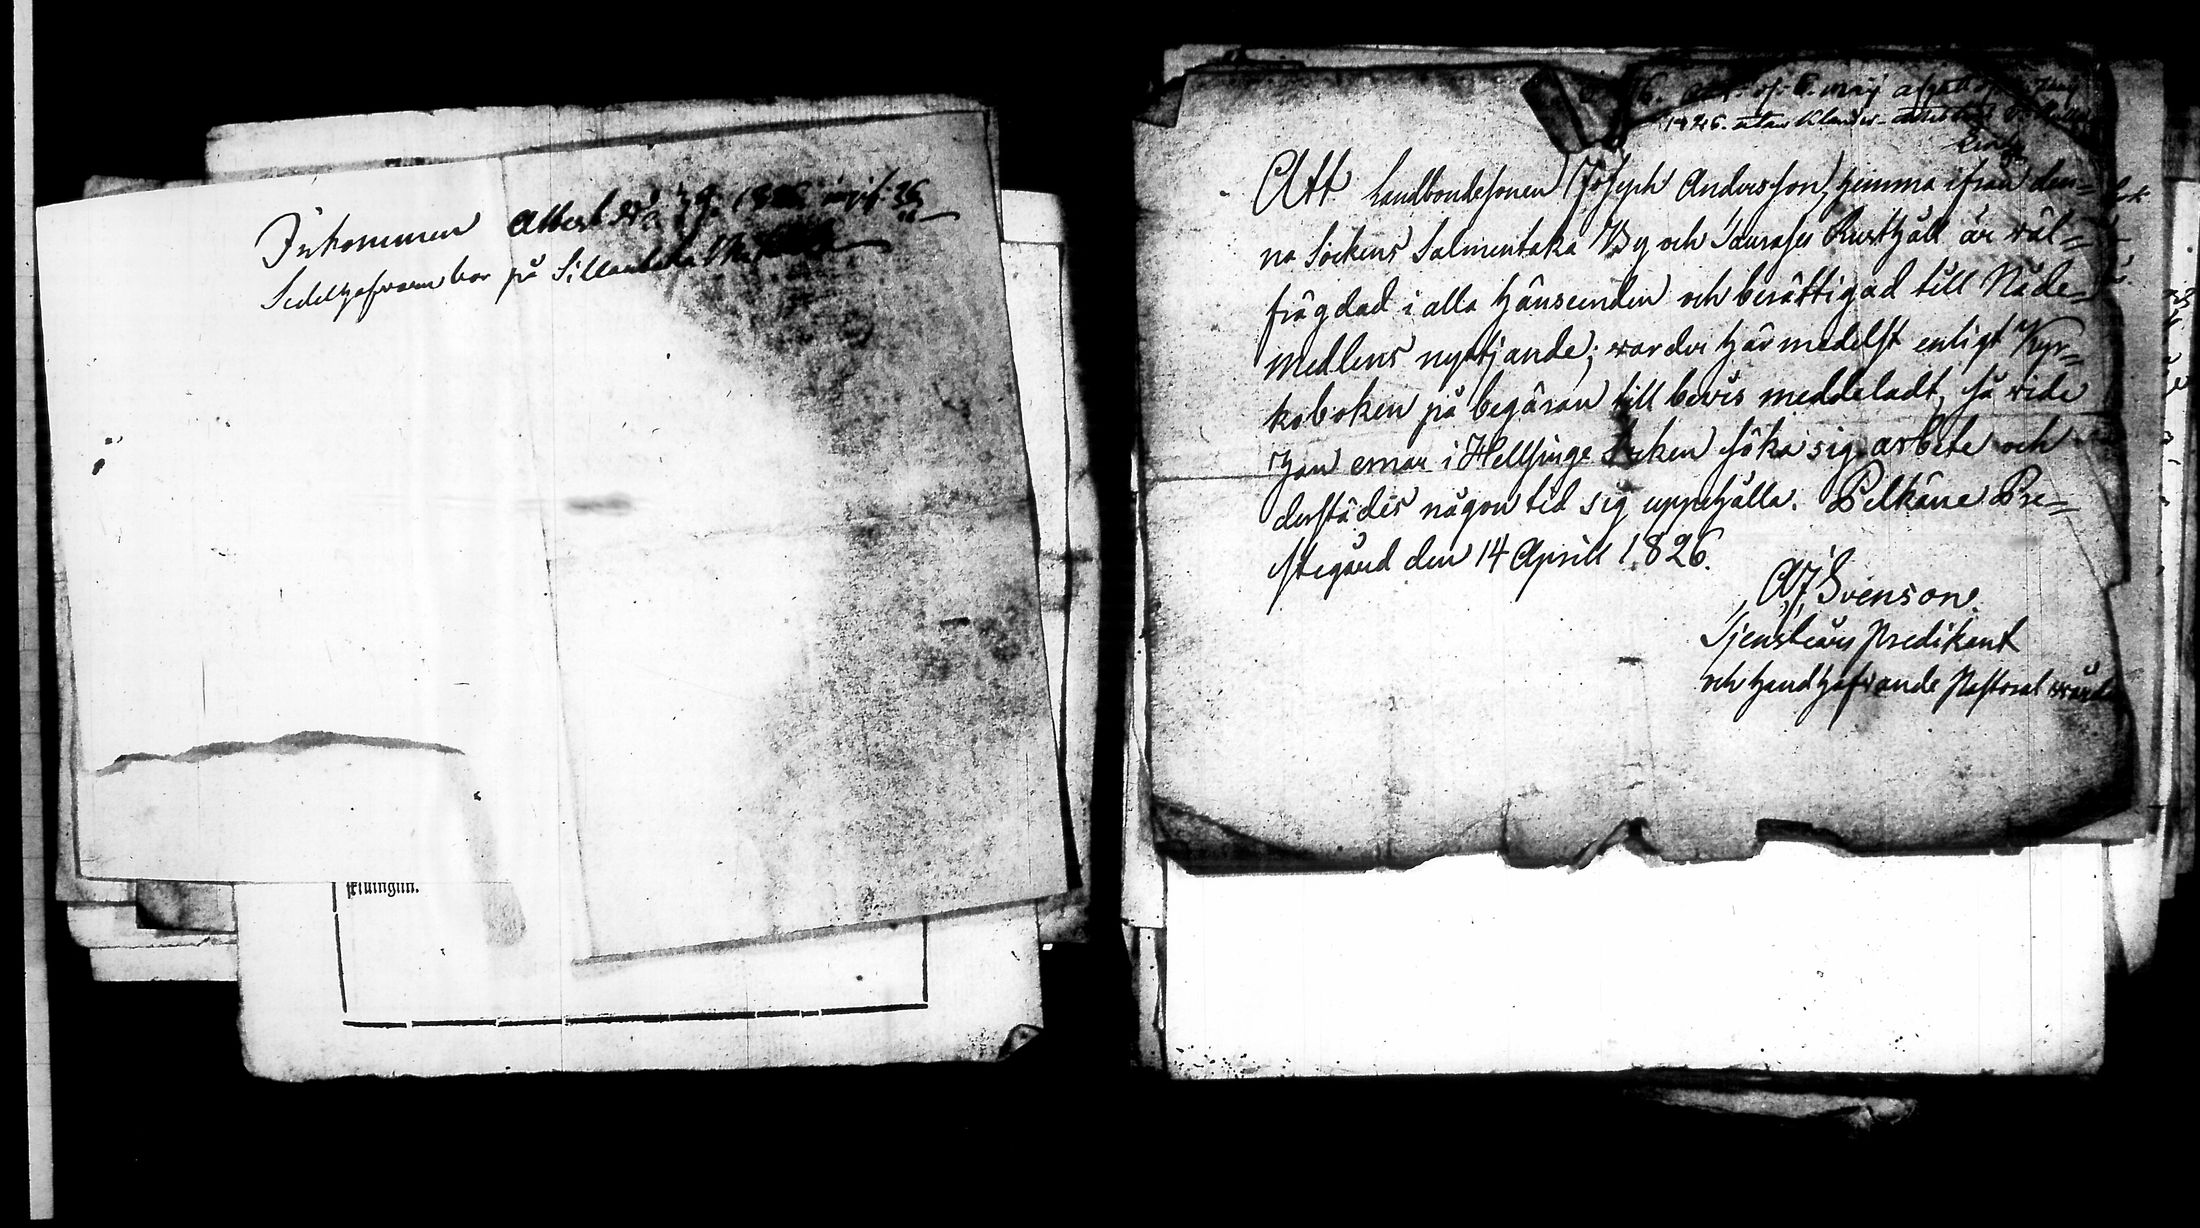 Inkommen Attest No 79. 1826
Sedelhafvaren bor på Sillanböle
ſkluingun.
6. maij
1826. utan Klander
Att Landbondesonen Joseph Andersson, hemma ifrån den=
na Sockens Salmentaka By och Taurases Rusthåll är wäl=
frägdad i alla hänseenden och berättigad till Nåde=
medlens nyttjande; warder härmedelst enligt Kyr=
koboken på begäran till bevis meddeladt, så vida
han ernar i Hellsinge Socken söka sig arbete och
derstädes någon tid sig uppehålla. Pelkäne Pre=
stegård den 14 Aprill 1826.
Svenson.
Tjenstein Predikant
och handhafvande Pastoral